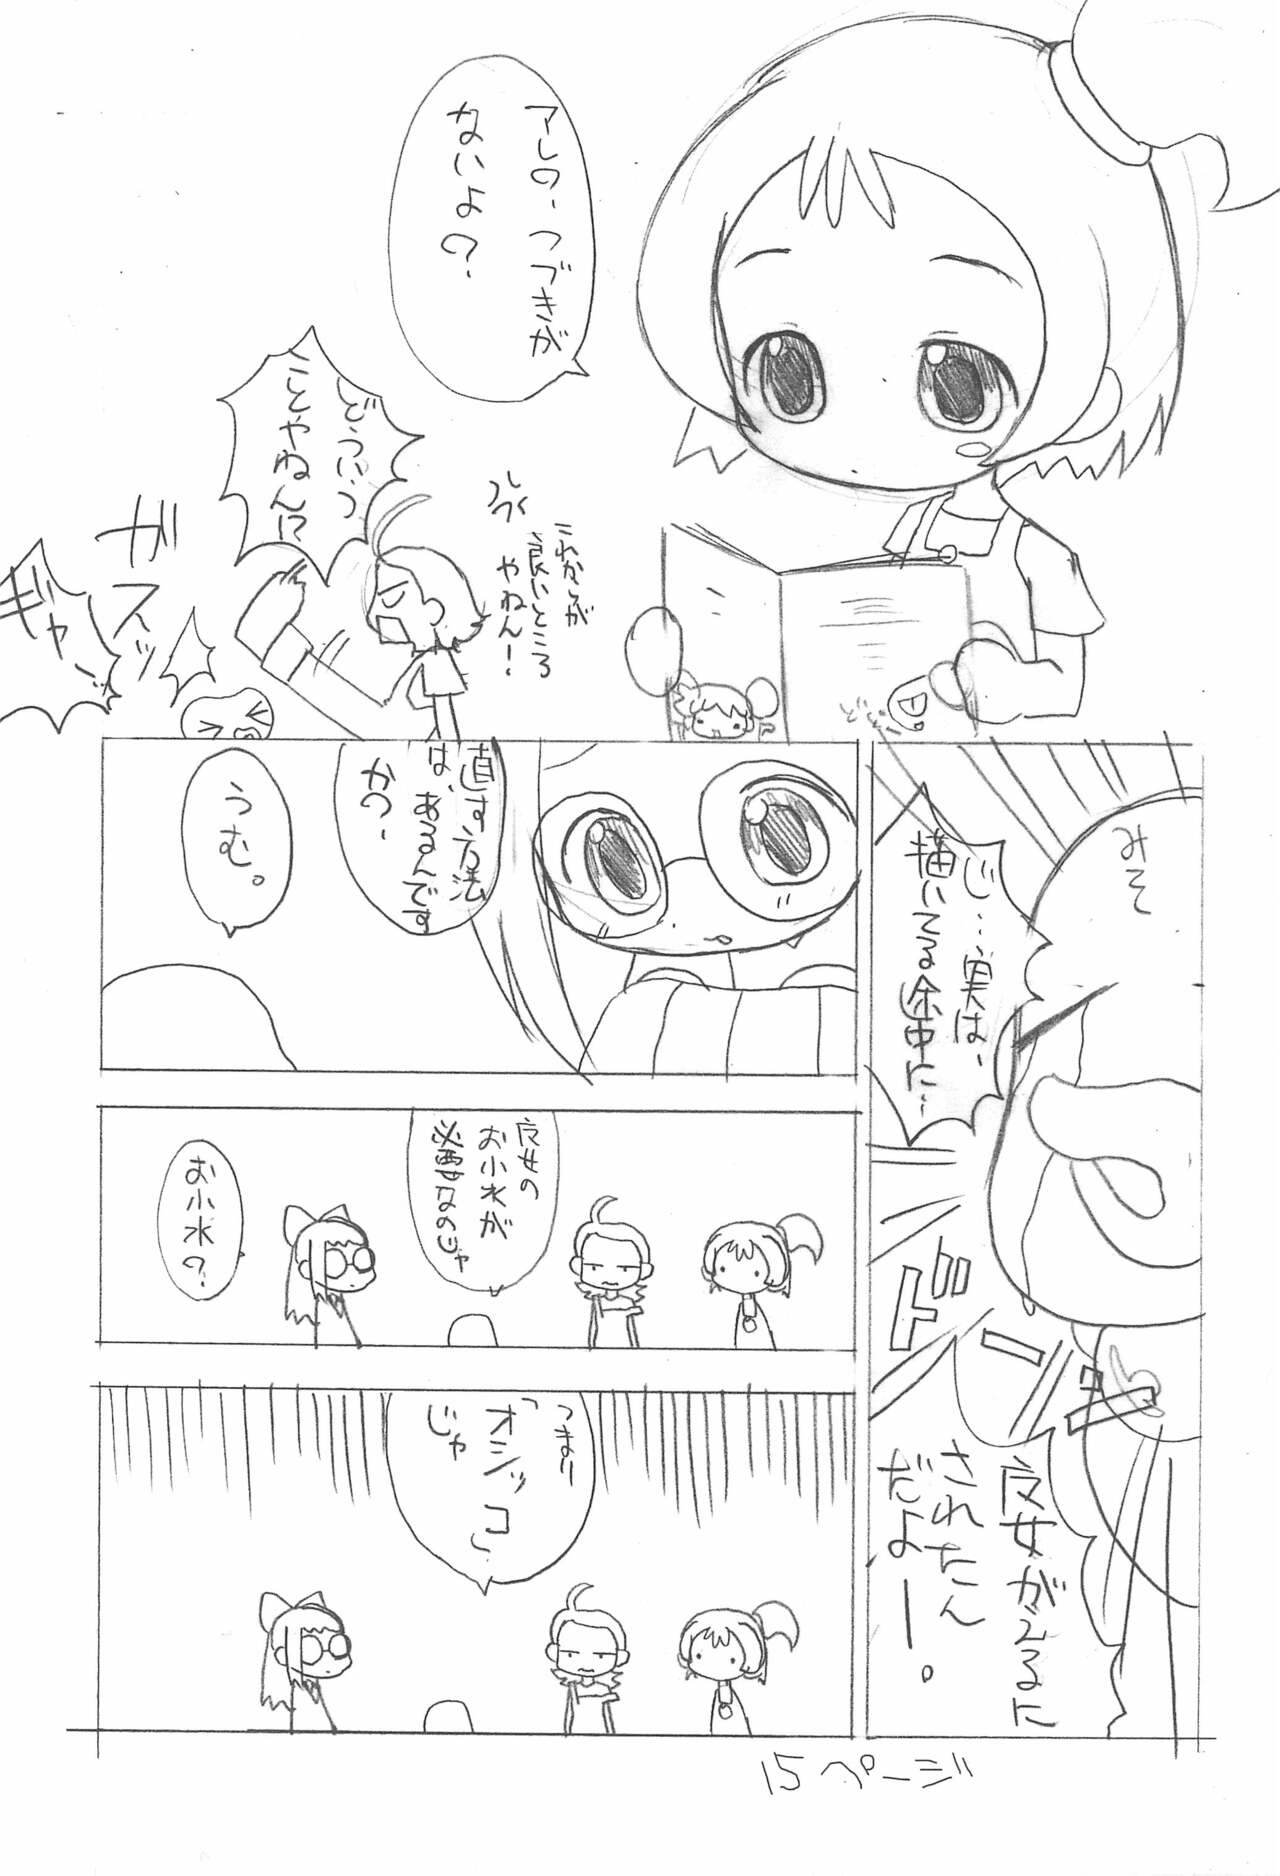 アレの、つづきが
ないよ？
これからが
良いところ
やねん！
どういう
ことやねん!?
ガスッ
ギャー
みそ
じ…実は、
描いてる途中に…
ドーン
魔女ガエルに
されたん
だよー。
直す方法
は、あるんです
か？
うむ。
魔女の
お小水が
必要なのじゃ
お小水？
つまり
「オシッコ」
じゃ
15ページ